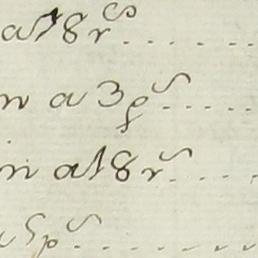 a 18 r.s
n a 3 p.s
n a 18 r.s
a 5 p.s